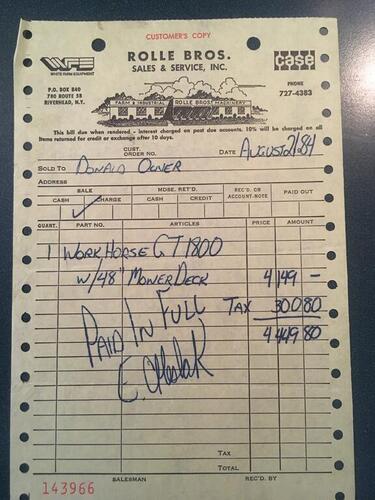 CUSTOMER'S COPY
WFE
WHITE FARM EQUIPMENT
ROLLE BROS.
SALES & SERVICE, INC.
CASE
P.O. BOX 840
780 ROUTE 58
RIVERHEAD, N.Y.
PHONE
727-4383
FARM & INDUSTRIAL ROLLE BROS. MACHINERY
This bill due when rendered - interest charged on past due accounts. 10% will be charged on all
items returned for credit or exchange after 10 days.
CUST. ORDER NO.
DATE AUGUST 21 84
SOLD TO DONALD
ADDRESS
SALE MDSE. RET'D. REC'D. ON ACCOUNT-NOTE PAID OUT
CASH CHARGE CASH CREDIT
QUANT. PART NO. ARTICLES PRICE AMOUNT
1 WORK HORSE GT 1800
W/48" MOWER DECK 4149 -
TAX 300 80
4449 80
PAID IN FULL
E.
TAX
TOTAL
143966
SALESMAN REC'D. BY